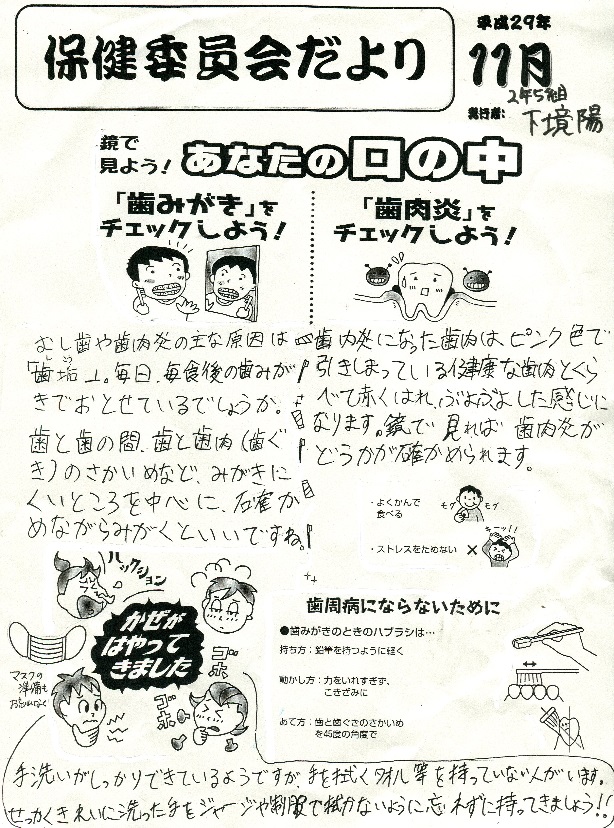 保健委員会だより
平成29年
11月
2年5組
発行者:
下境陽
鏡で
見よう!
あなたの口の中
「歯みがき」を
チェックしよう!
むし歯や歯肉炎の主な原因は
「歯垢」。毎日、毎食後の歯みが
きでおとせているでしょうか。
歯と歯の間、歯と歯肉(歯ぐ
き)のさかいめなど、みがきに
くいところを中心に、石雀か
めながらみがくといいですね。
「歯肉炎」を
チェックしよう!
歯肉炎になった歯肉は、ピンク色で
引きしまっている健康な歯肉とくら
べて赤くはれ、ぶよぶよした感じに
なります。鏡で見れば歯肉炎が
どうかが確かめられます。
・よくかんで
食べる
モグ モグ
・ストレスをためない
キーッ!!
ハックション
かぜが
はやって
きました
ゴホ
ゴホ
マスクの
準備も
お忘れなく
歯周病にならないために
●歯みがきのときのハブラシは…
持ち方:鉛筆を持つように軽く
動かし方:力をいれすぎず、
こきざみに
あて方:歯と歯ぐきのさかいめ
を45度の角度で
手洗いがしっかりできているようですが、手を拭くタオル等を持っていない人がいます。
せっかくきれいに洗った手をジャージや制服で拭かないように忘れずに持ってきましょう!!